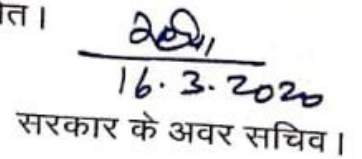 त।
16.3.2020
सरकार के अवर सचिव।